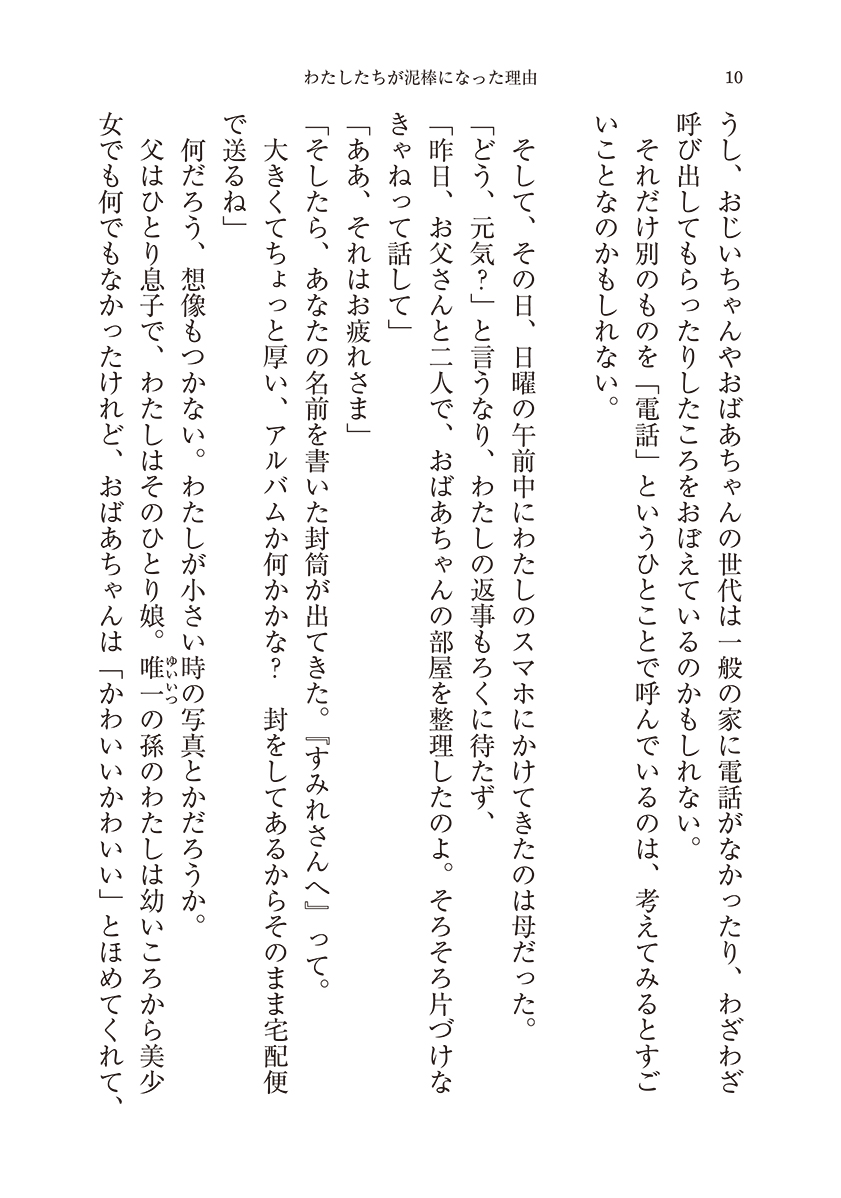 わたしたちが泥棒になった理由
10
うし、おじいちゃんやおばあちゃんの世代は一般の家に電話がなかったり、わざわざ
呼び出してもらったりしたころをおぼえているのかもしれない。
それだけ別のものを「電話」というひとことで呼んでいるのは、考えてみるとすご
いことなのかもしれない。
そして、その日、日曜の午前中にわたしのスマホにかけてきたのは母だった。
「どう、元気？」と言うなり、わたしの返事もろくに待たず、
「昨日、お父さんと二人で、おばあちゃんの部屋を整理したのよ。そろそろ片づけな
きゃねって話して」
「ああ、それはお疲れさま」
「そしたら、あなたの名前を書いた封筒が出てきた。『すみれさんへ』って。
大きくてちょっと厚い、アルバムか何かかな？　封をしてあるからそのまま宅配便
で送るね」
何だろう、想像もつかない。わたしが小さい時の写真とかだろうか。
父はひとり息子で、わたしはそのひとり娘。唯一の孫のわたしは幼いころから美少
ゆいいつ
女でも何でもなかったけれど、おばあちゃんは「かわいいかわいい」とほめてくれて、